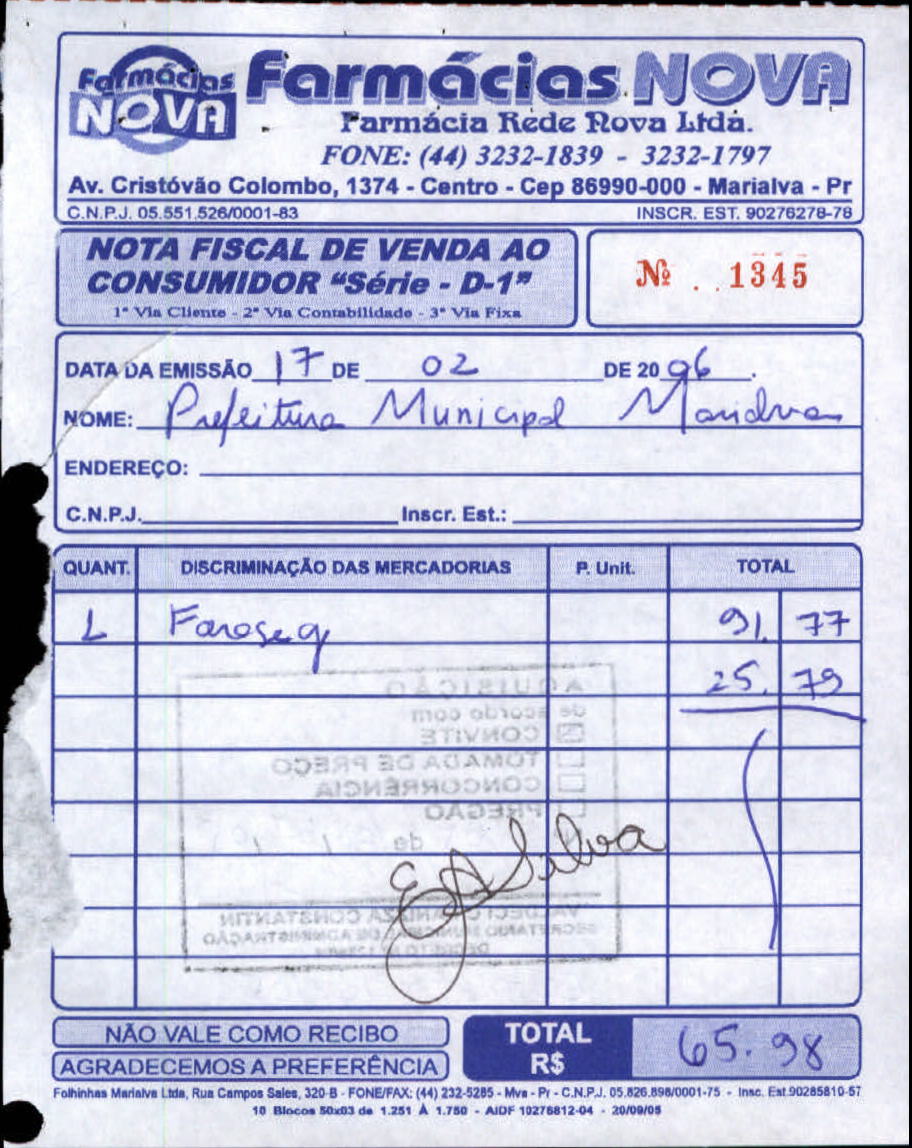 Farmácias NOVA
Farmácias NOVA
Farmácia Rede Nova Ltda.
FONE: (44) 3232-1839 - 3232-1797
Av. Cristóvão Colombo, 1374 - Centro - Cep 86990-000 - Marialva - Pr
C.N.P.J. 05.551.526/0001-83 INSCR. EST. 90276278-78
NOTA FISCAL DE VENDA AO
CONSUMIDOR "Série - D-1"
1ª Via Cliente - 2ª Via Contabilidade - 3ª Via Fixa
Nº 1345
DATA DA EMISSÃO 17 DE 02 DE 2006.
NOME: Prefeitura Municipal
ENDEREÇO:
C.N.P.J. Inscr. Est.:
QUANT. DISCRIMINAÇÃO DAS MERCADORIAS P. Unit. TOTAL
91.77
25.79
AQUISIÇÃO
de acordo com
CONVITE
TOMADA DE PREÇO
CONCORRÊNCIA
PREGÃO
de / /
Silva
CONSTANTIN
SECRETARIO MUNICIPAL DE ADMINISTRAÇÃO
DECRETO
NÃO VALE COMO RECIBO
AGRADECEMOS A PREFERÊNCIA
TOTAL
R$
65.98
Folhinhas Marialva Ltda, Rua Campos Sales, 320-B - FONE/FAX: (44) 232-5285 - Mva - Pr - C.N.P.J. 05.826.898/0001-75 - Insc. Est.90285810-57
10 Blocos 50x03 de 1.251 À 1.750 - AIDF 10276812-04 - 20/09/05